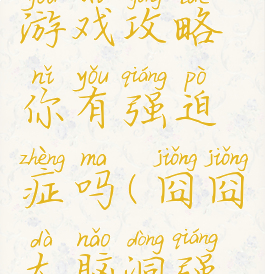 游戏攻略
nǐ yǒu qiáng pò
你有强迫
zhèng ma jiǒng jiǒng
症吗(囧囧
dà nǎo dòng qiáng
大脑洞强